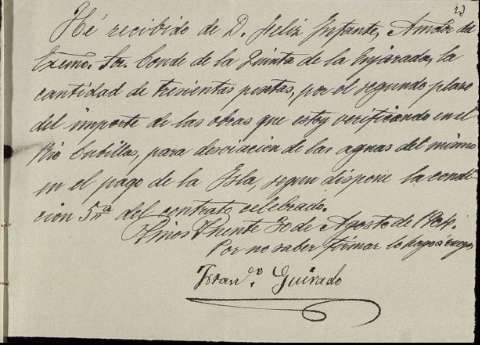 23
He recibido de D. Feliz Infante, Amdor. de
Excmo. Sor. Conde de la Quinta de la Enjarada, la
cantidad de trescientas pesetas, por el segundo plazo
del importe de las obras que estoy verificando en el
Rio Cubillas, para desviacion de las aguas del mismo
en el pago de la Isla, segun dispone la condi-
cion 5ª. del contrato celebrado.
Fuente 30 de Agosto de 1904.
Por no saber firmar lo hago á ruego
Franco. Guirado